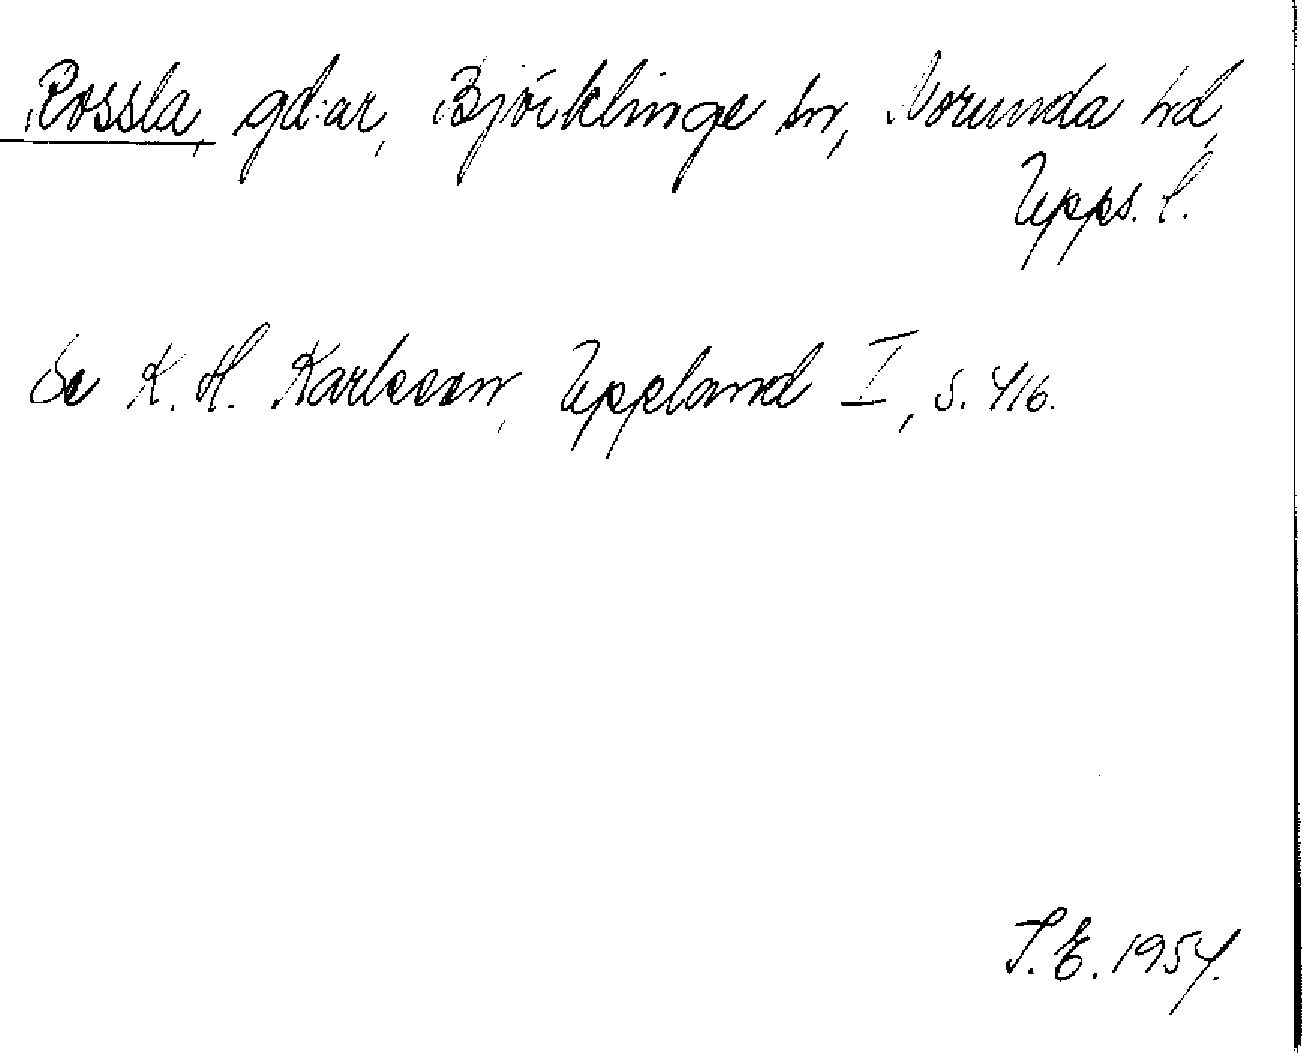 Rossla, gd:ar, Björklinge sn, Norunda hd,
Upps. l.
Se K. H. Karlsson, Uppland I, s. 416.
T. E. 1954.